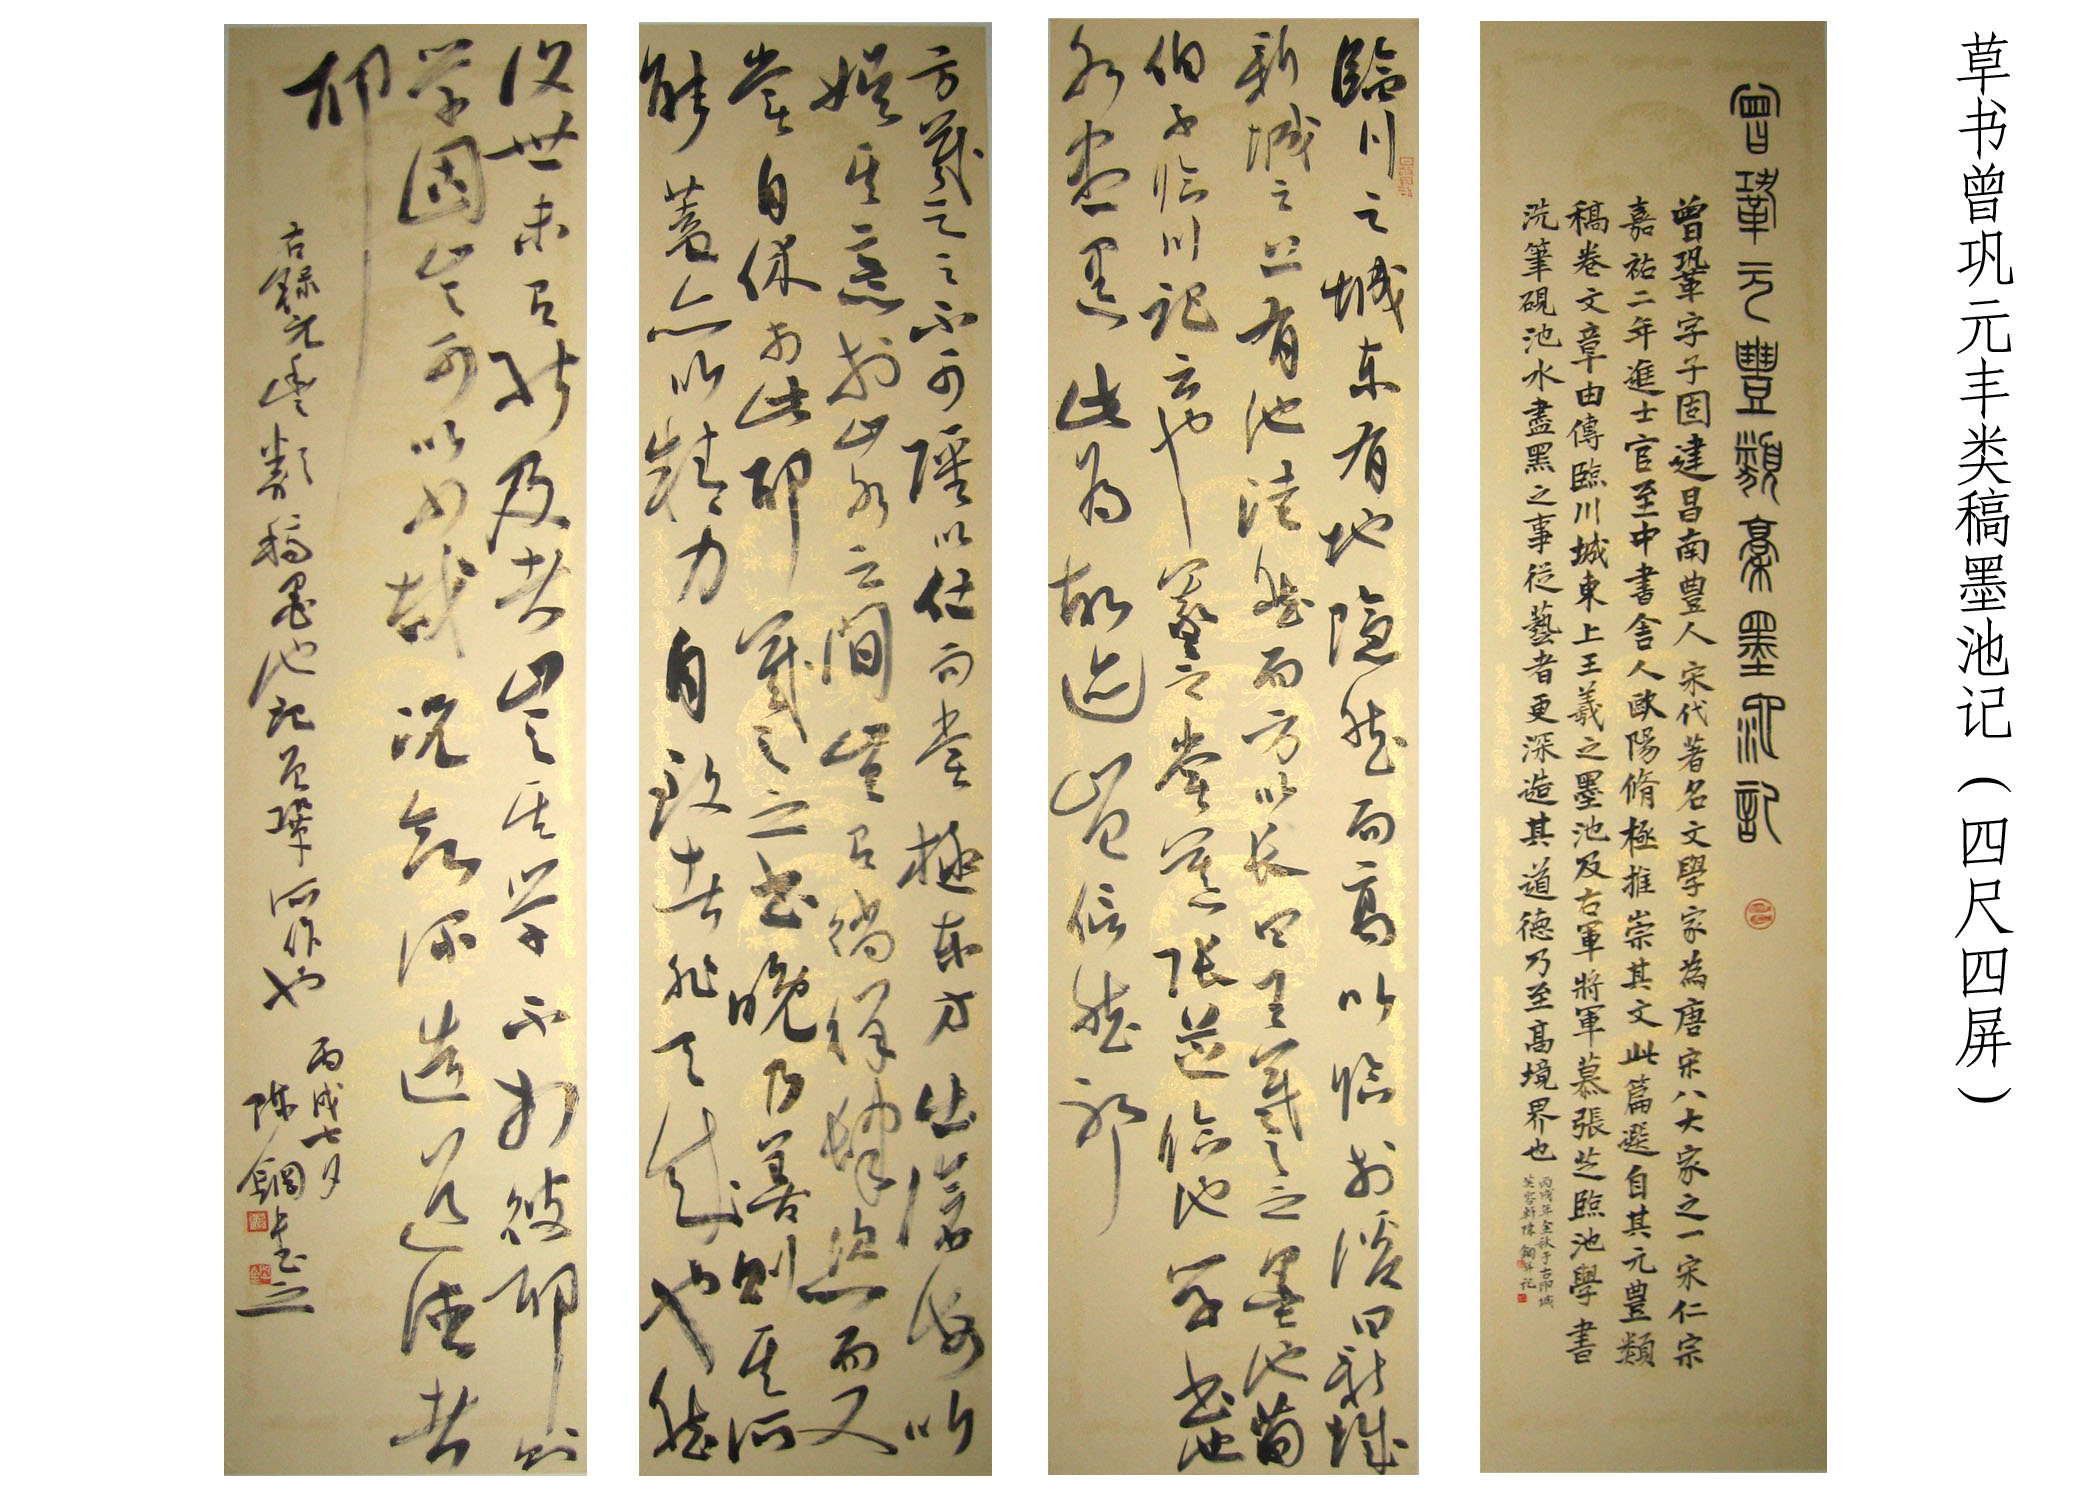 草书曾巩元丰类稿墨池记（四尺四屏）
曾鞏元豐類稾墨池記
曾鞏字子固建昌南豊人宋代著名文學家為唐宋八大家之一宋仁宗
嘉祐二年進士官至中書舍人歐陽脩極推崇其文此篇選自其元豊類
稿卷文章由傳臨川城東上王羲之墨池及右軍將軍慕張芝臨池學書
洗筆硯池水盡黑之事從藝者更深造其道德乃至高境界也
臨川之城東有地隐然而高以临於溪曰新城
新城之上有池洼然而方以长曰王羲之之墨池荀
伯子临川记云也羲之尝慕张芝临池学书池
水尽黑此为故迹岂信然耶
方羲之之不可强以仕而尝极东方出滄海以
娱其意於山水之间岂有徜徉肆恣而又
尝自休於此耶羲之之书晚乃善则其所
能蓋亦以精力自致者非天成也然
後世未有能及者岂其学不如彼耶则
学固岂可以少哉况欲深造道德者
耶
右錄元丰類稿墨池記曾鞏所作也
丙戌七月
陈鋼书之